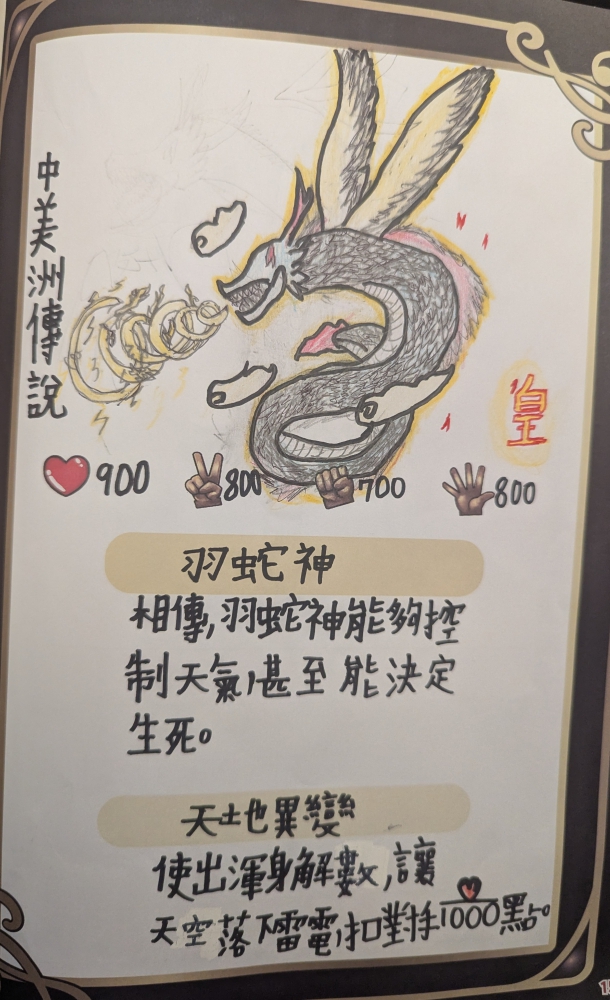 中美洲傳說
皇
900
800
700
800
羽蛇神
相傳,羽蛇神能夠控
制天氣,甚至能決定
生死。
天地異變
使出渾身解數,讓
天空落下雷電,扣對手1000點。